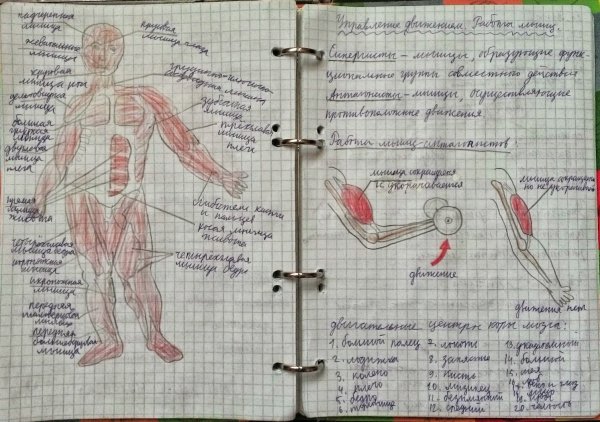 надчерепная
мышца
жевательные
мышцы
круговая
мышца рта
дельтовидная
мышца
большая
грудная
мышца
двуглавая
мышца
плеча
прямая
мышца
живота
четырёхглавая
мышца бедра
портняжная
мышца
икроножная
мышца
передняя
мышца
передняя
большеберцовая
мышца
круговая
мышца глаза
мышца
трёхглавая
мышца
плеча
сгибатели кисти
и пальцев
косая мышца
живота
четырёхглавая
мышца бедра
Управление движением. Работа мышц.
Синергисты – мышцы, образующие функ-
циональные группы совместного действия
Антагонисты – мышцы, осуществляющие
противоположные движения.
Работа мышц-антагонистов:
мышца сокращается
и укорачивается
мышца сокращена,
но не укорачивается
движение
движения нет
двигательные центры коры мозга:
1. большой палец
2. лодыжка
3. колено
4. плечо
5. бедро
6. туловище
7. локоть
8. запястье
9. кисть
10. мизинец
11. безымянный
12. средний
13. указательный
14. большой
15. шея
20. челюсть